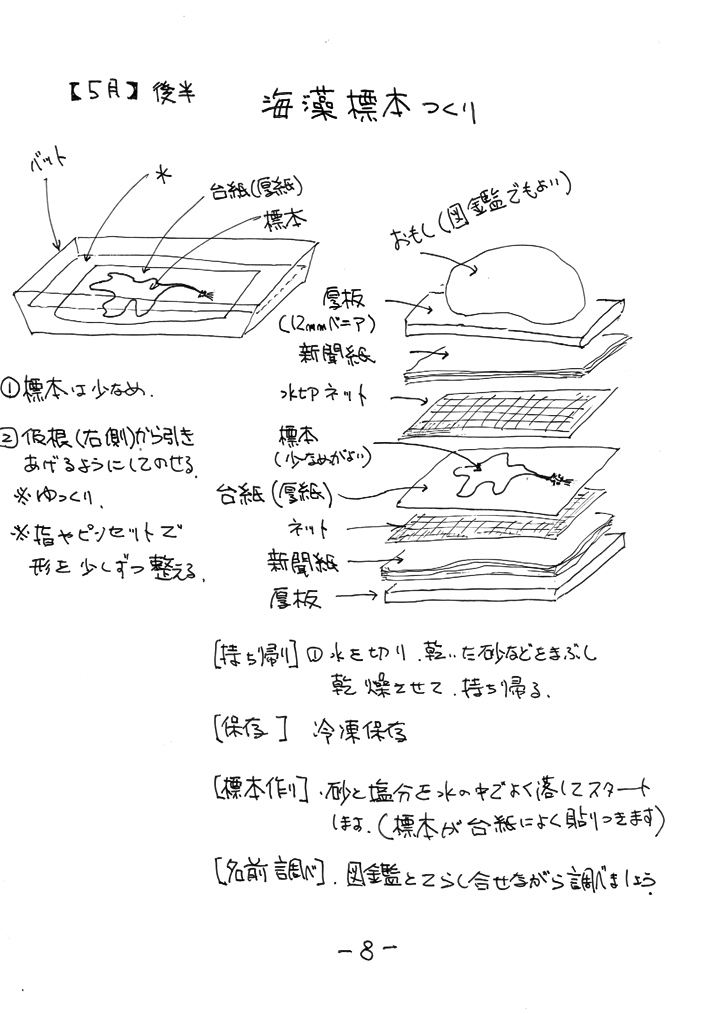 【5月】後半
海藻標本つくり
バット
水
台紙(厚紙)
標本
①標本は少なめ.
②仮根(右側)から引き
あげるようにしてのせる.
※ゆっくり.
※指やピンセットで
形を少しずつ整える.
おもし(図鑑でもよい)
厚板
(12mmベニア)
新聞紙
水切ネット
標本
(少なめがよい)
台紙(厚紙)
ネット
新聞紙
厚板
[持ち帰り]①水を切り.乾いた砂などをまぶし
乾燥させて.持ち帰る.
[保存] 冷凍保存
[標本作り].砂と塩分を水の中でよく落してスタート
します.(標本が台紙によく貼りつきます)
[名前調べ].図鑑とてらし合せながら調べましょう.
-8-